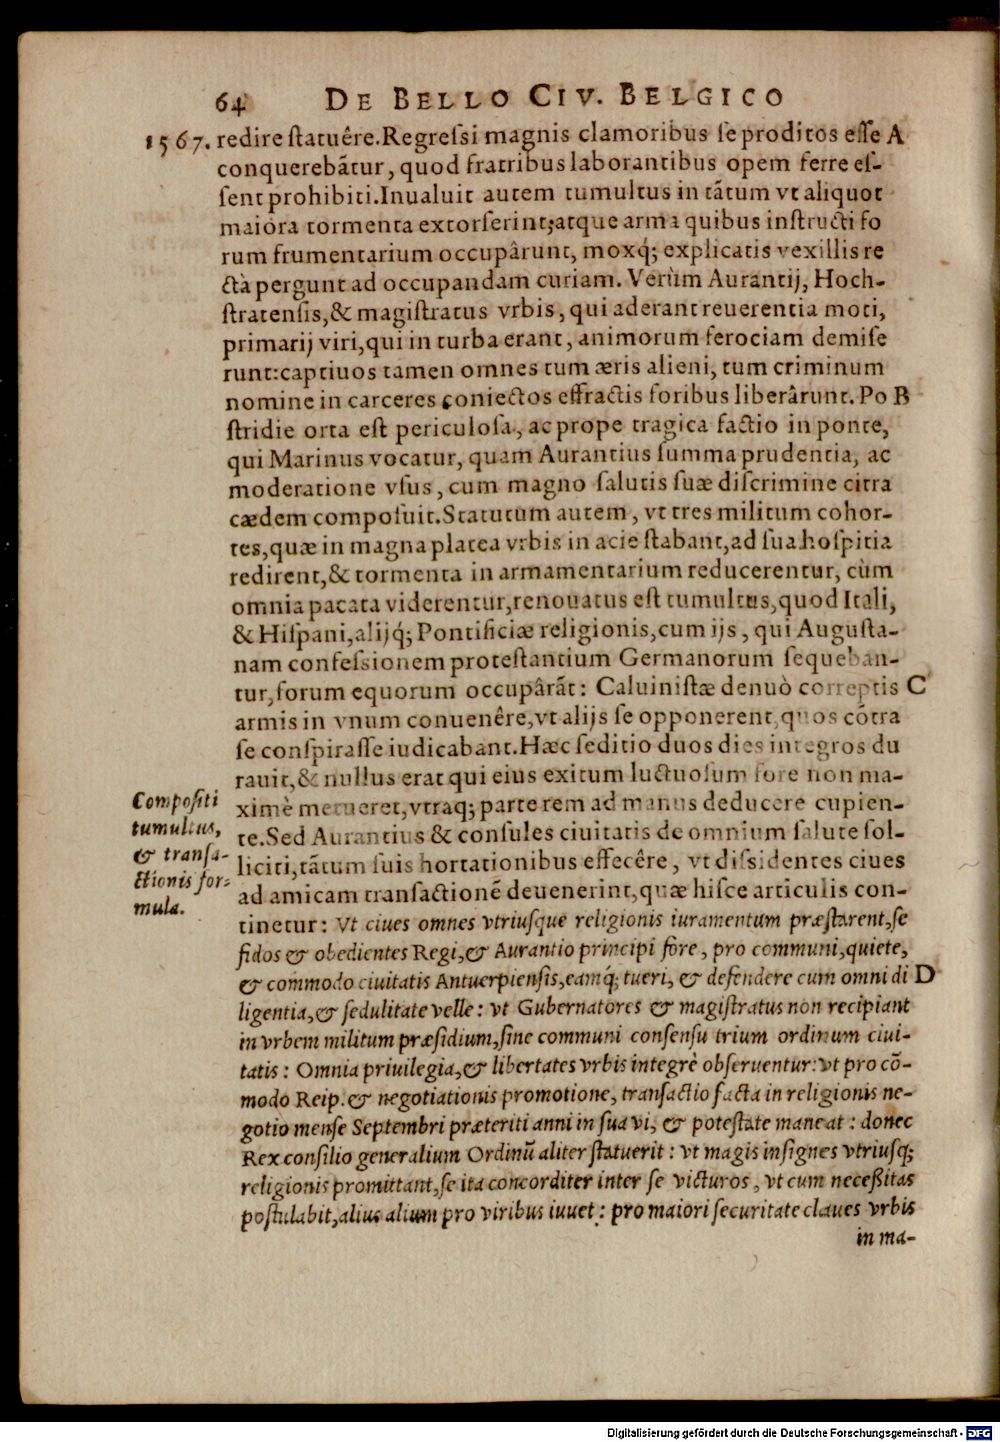 64 DE BELLO CIV. BELGICO
1567. redire statuêre. Regreſsi magnis clamoribus ſe proditos eſſe A
conquerebãtur, quod fratribus laborantibus opem ferre eſ-
ſent prohibiti. Inualuit autem tumultus in tãtum vt aliquot
maiora tormenta extorſerint; atque arma quibus inſtructi fo
rum frumentarium occupârunt, moxq́; explicatis vexillis re
ctà pergunt ad occupandam curiam. Verùm Aurantij, Hoch-
ſtratenſis, & magiſtratus vrbis, qui aderant reuerentia moti,
primarij viri, qui in turba erant, animorum ferociam demiſe
runt: captiuos tamen omnes tum æris alieni, tum criminum
nomine in carceres coniectos effractis foribus liberârunt. Po B
ſtridie orta eſt periculoſa, ac prope tragica factio in ponte,
qui Marinus vocatur, quam Aurantius ſumma prudentia, ac
moderatione vſus, cum magno ſalutis ſuæ diſcrimine citra
cædem compoſuit. Statutum autem, vt tres militum cohor-
tes, quæ in magna platea vrbis in acie ſtabant, ad ſua hoſpitia
redirent, & tormenta in armamentarium reducerentur, cùm
omnia pacata viderentur, renouatus eſt tumultus, quod Itali,
& Hiſpani, alijq́; Pontificiæ religionis, cum ijs, qui Auguſta-
nam confeſsionem proteſtantium Germanorum ſequeban-
tur, forum equorum occupârãt: Caluiniſtæ denuò correptis C
armis in vnum conuenêre, vt alijs ſe opponerent, quos cõtra
ſe conſpiraſſe iudicabant. Hæc ſeditio duos dies integros du
rauit, & nullus erat qui eius exitum luctuoſum fore non ma-
ximè metueret, vtraq; parte rem ad manus deducere cupien-
te. Sed Aurantius & conſules ciuitatis de omnium ſalute ſol-
liciti, tãtum ſuis hortationibus effecêre, vt diſsidentes ciues
ad amicam tranſactionẽ deuenerint, quæ hiſce articulis con-
tinetur: Vt ciues omnes vtriuſque religionis iuramentum præſtarent, ſe
fidos & obedientes Regi, & Aurantio principi fore, pro communi, quiete,
& commodo ciuitatis Antuerpienſis, eamq́; tueri, & defendere cum omni di D
ligentia, & ſedulitate velle: vt Gubernatores & magiſtratus non recipiant
in vrbem militum præſidium, ſine communi conſenſu trium ordinum ciui-
tatis: Omnia priuilegia, & libertates vrbis integrè obſeruentur: vt pro cõ-
modo Reip. & negotiationis promotione, tranſactio facta in religionis ne-
gotio menſe Septembri præteriti anni in ſua vi, & poteſtate maneat: donec
Rex conſilio generalium Ordinũ aliter ſtatuerit: vt magis inſignes vtriuſq;
religionis promittant, ſe ita concorditer inter ſe victuros, vt cum neceßitas
poſtulabit, alius alium pro viribus iuuet: pro maiori ſecuritate claues vrbis
in ma-
Compoſiti
tumultus,
& tranſa-
ctionis for-
mula.
Digitalisierung gefördert durch die Deutsche Forschungsgemeinschaft - DFG